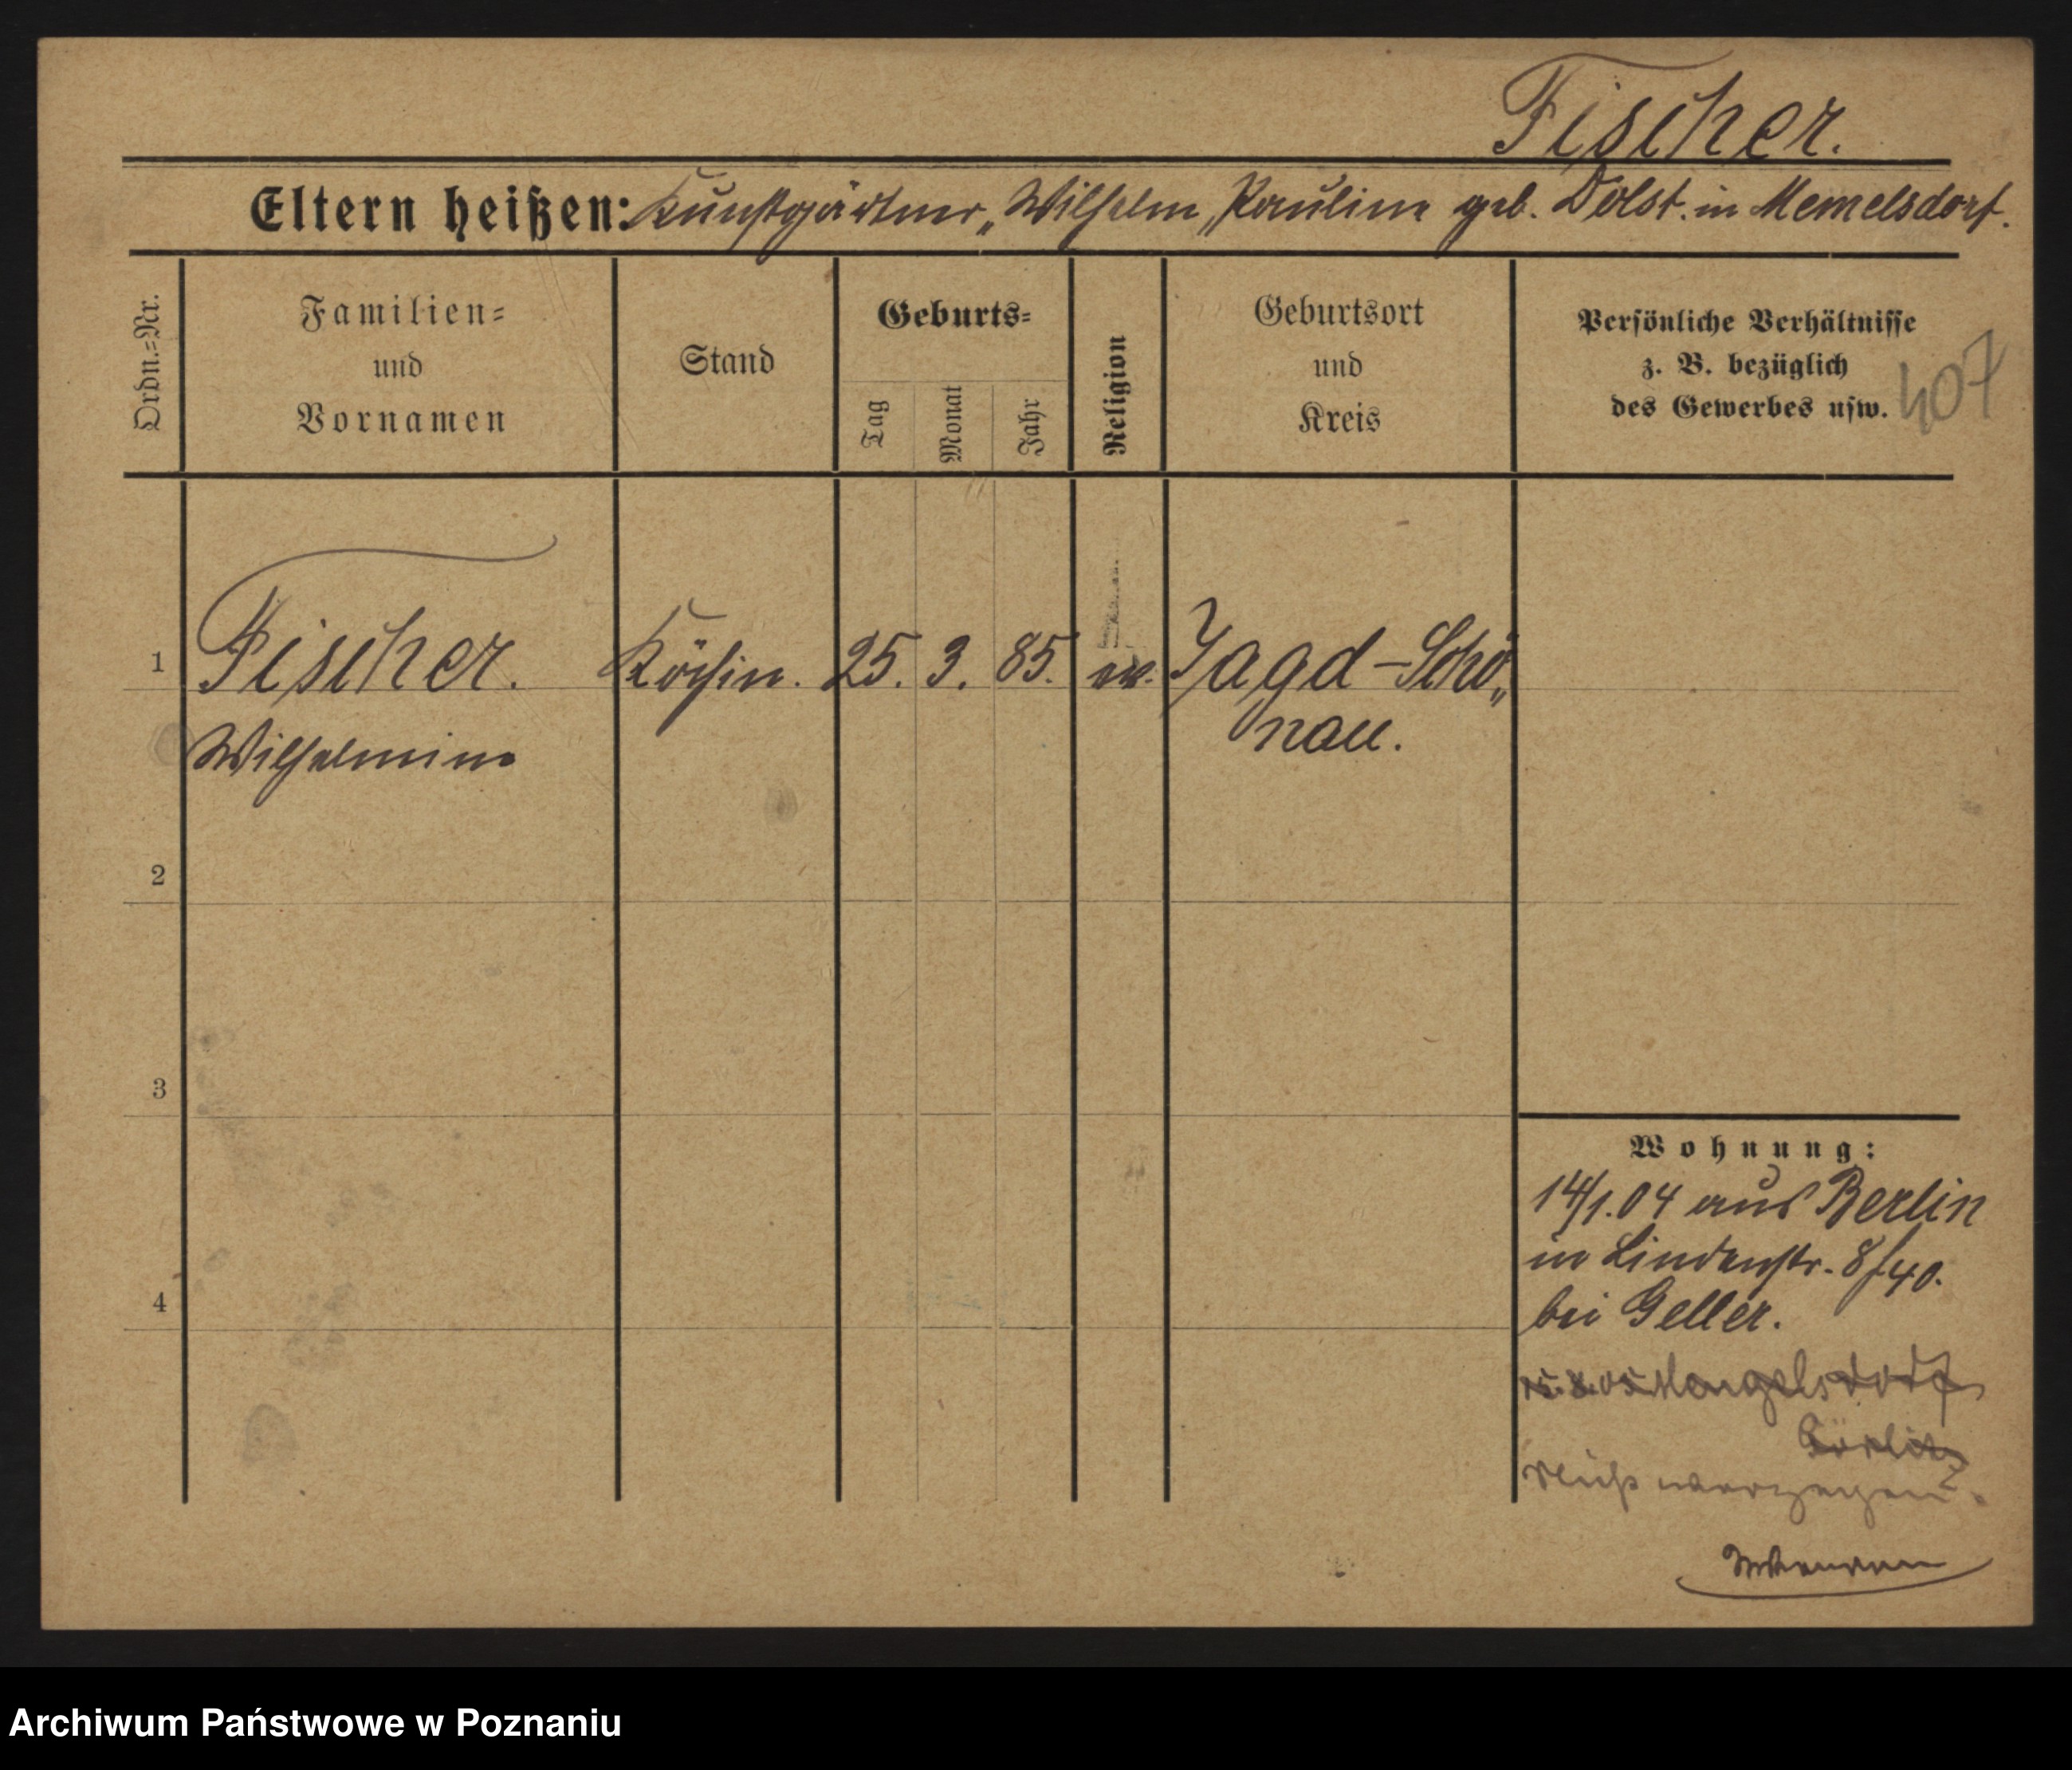 Fischer.
Eltern heißen: Kunstgärtner „Wilhelm, Pauline geb. Dolst. in Memelsdorf.
Ordn.=Nr.
Familien=
und
Vornamen
Stand
Geburts=
Tag
Monat
Jahr
Religion
Geburtsort
und
Kreis
Persönliche Verhältnisse
z. B. bezüglich
des Gewerbes usw.
407
1 Fischer. Köchin. 25. 3. 85. ev. Jagd-Schö„
Wilhelmine nau.
2
3
4
Wohnung:
14/1.04 aus Berlin
in Lindenstr. 8/40.
bei Geller.
Mangelsdorf
Görlitz
verzogen.
Archiwum Państwowe w Poznaniu